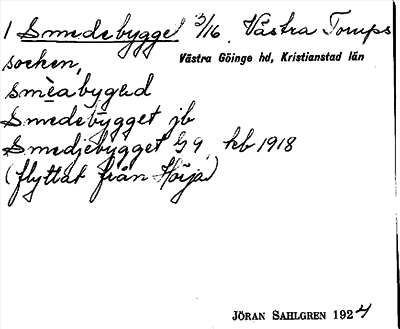 1 Smedebygget 3/16. Västra Torups
socken, Västra Göinge hd, Kristianstad län
smèabygəd
Smedebygget jb
Smedjebygget G 9, kb 1918
(flyttat från Hörja)
JÖRAN SAHLGREN 1924